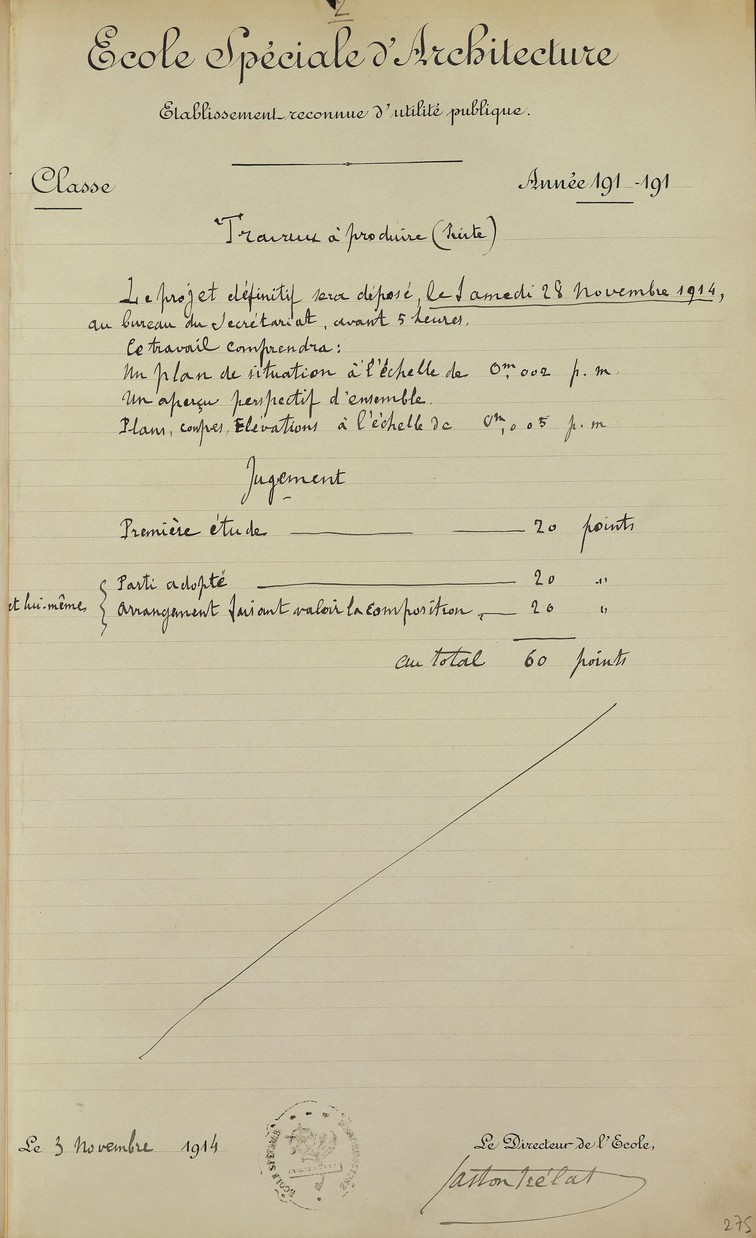 2
Ecole Spéciale d'Architecture
Etablissement reconnue d'utilité publique.
Classe
Année 191 -191
Travaux à produire (Suite)
Le projet définitif sera déposé, le Samedi 28 Novembre 1914,
au bureau du Secrétariat, avant 5 heures.
Ce travail comprendra:
Un plan de situation à l'échelle de 0m,002 p. m.
Un aperçu perspectif d'ensemble.
Plans, coupes, Elévations à l'échelle de 0m,005 p. m
Jugement
Première étude 20 points
Parti adopté 20 "
et lui-même Arrangement faisant valoir la composition 20 "
au total 60 points
Le 3 Novembre 1914
Le Directeur de l'Ecole,
Gaston Trélat
275